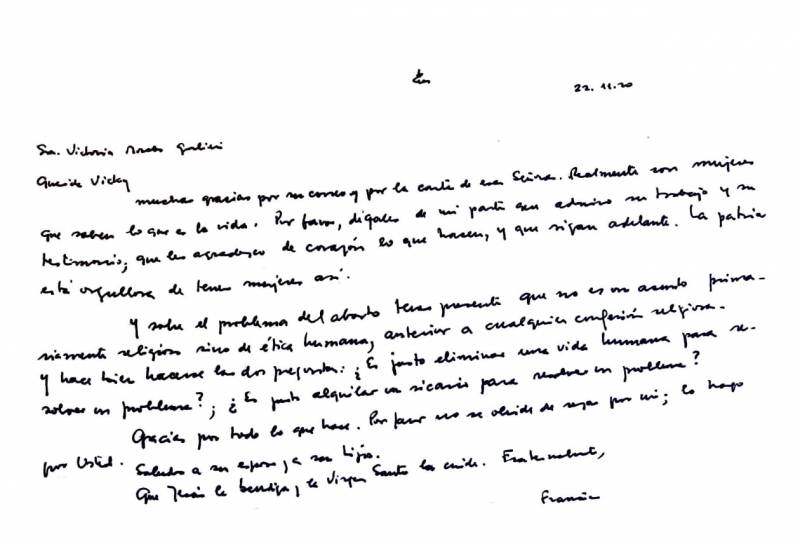 22.11.20
Sra. Victoria Morales Gorleri
Querida Vicky
muchas gracias por su correo y por la carta de esas Señoras. Realmente son mujeres
que saben lo que es la vida. Por favor, dígales de mi parte que admiro su trabajo y su
testimonio; que les agradezco de corazón lo que hacen, y que sigan adelante. La patria
está orgullosa de tener mujeres así.
Y sobre el problema del aborto tener presente que no es un asunto prima-
riamente religioso sino de ética humana, anterior a cualquier confesión religiosa.
Y hace bien hacerse las dos preguntas: ¿Es justo eliminar una vida humana para re-
solver un problema?, ¿Es justo alquilar un sicario para resolver un problema?
Gracias por todo lo que hace. Por favor no se olvide de rezar por mí; lo hago
por Usted. Saludos a su esposo y a sus hijos.
Que Jesús la bendiga y la Virgen Santa la cuide. Fraternalmente,
Francisco